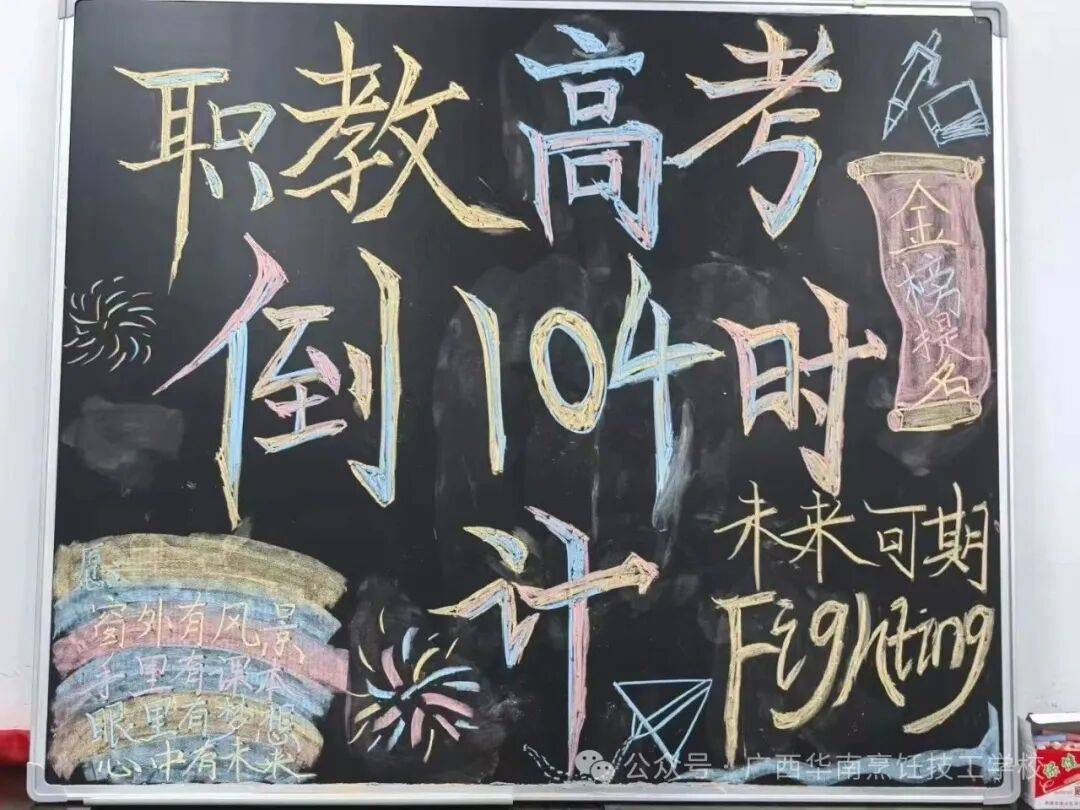 职教高考
倒104时
计
金榜提名
未来可期
Fighting
愿:
窗外有风景
手里有课本
眼里有梦想
心中有未来
公众号·广西华南烹饪技工学校